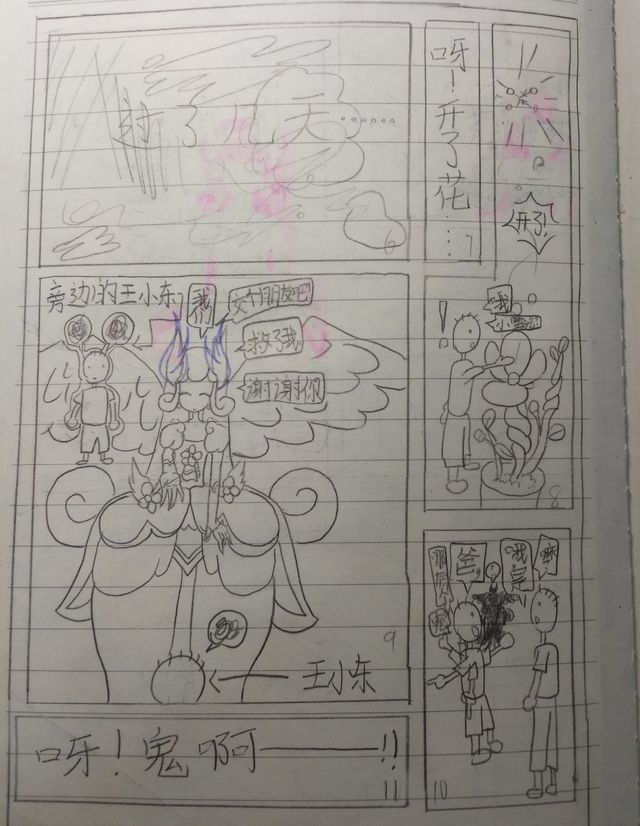 过了几天……
6
呀！开了花…
7
开了！
旁边的王小东
我们
交个朋友吧
救了我
谢谢你
9
王小东
我
8
爸
10
呀！鬼啊——!!
11